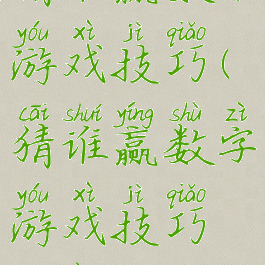 yóu xì jì qiǎo
游戏技巧(
cāi shuí yíng shù zì
猜谁赢数字
yóu xì jì qiǎo
游戏技巧